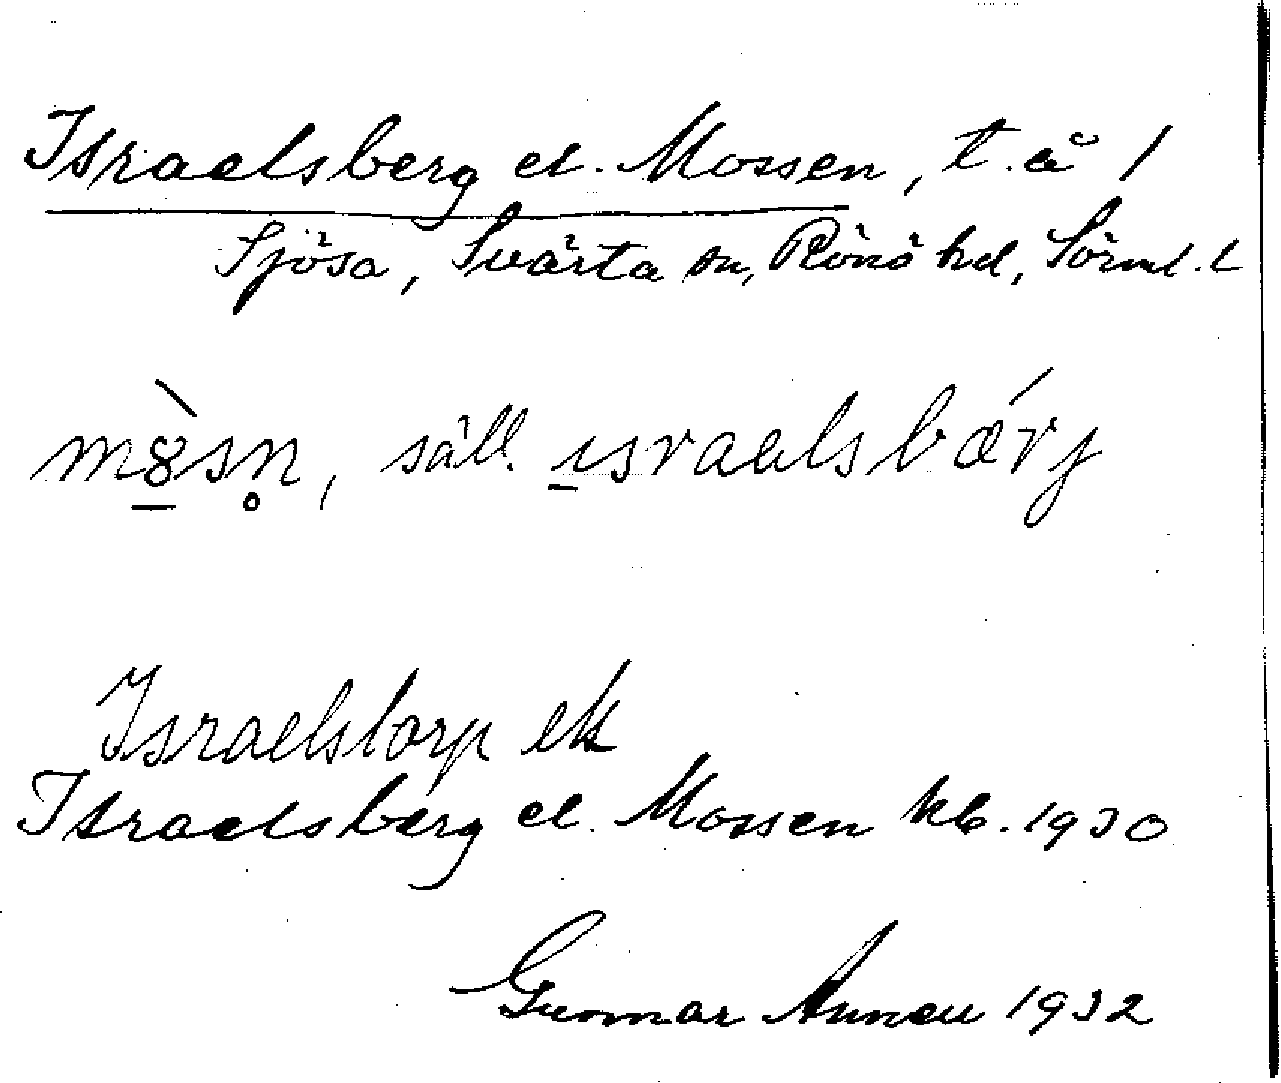 Israelsberg el. Mossen, t. å 1
Sjösa, Svärta sn, Rönö hd, Sörml. l
mò̠sn̥, säll. ı̠sraelsbǽrj
Israelstorp ek
Israelsberg el. Mossen kb. 1930
Gunnar Annell 1932